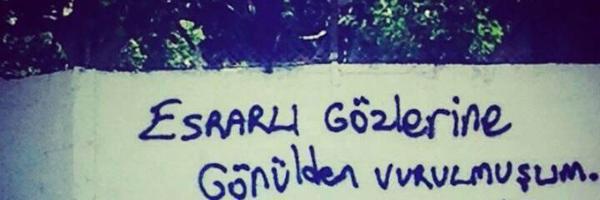 ESRARLI GÖzlerine
GÖNÜlden VURULMUŞUM.